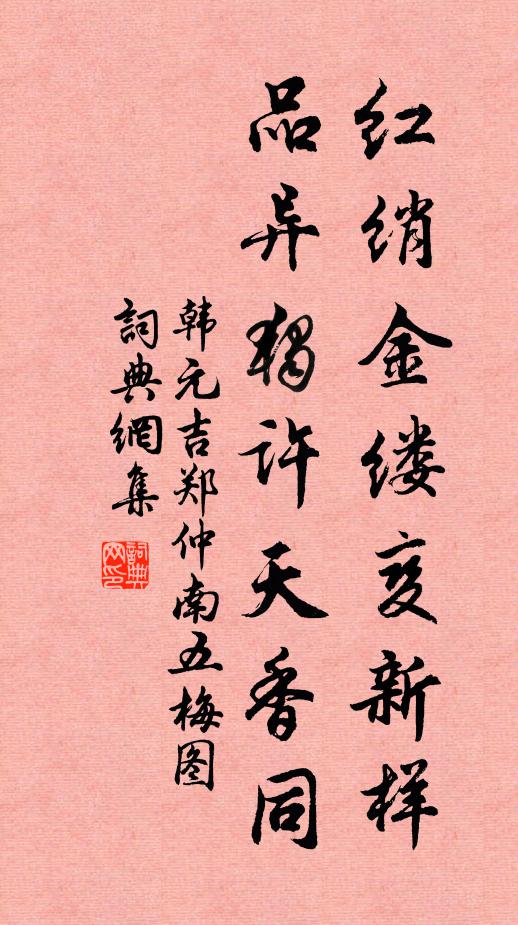 红绡金缕变新样
品异独许天香同
韩元吉郑仲南五梅图
詞典網集
詞典网印